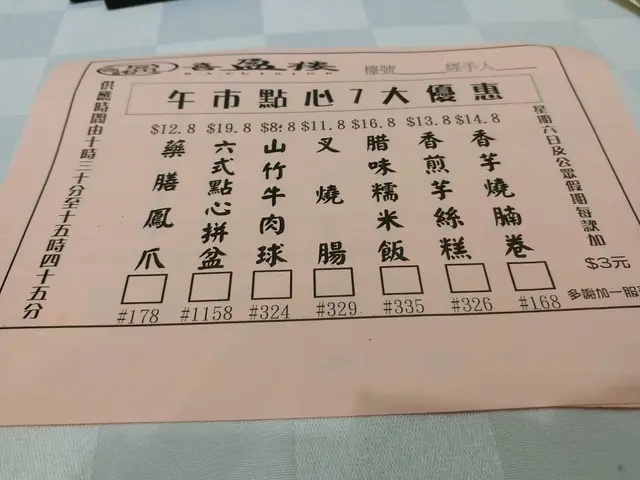 喜盈楼
檯號 經手人
午市點心7大優惠
$12.8 $19.8 $8.8 $11.8 $16.8 $13.8 $14.8
香芋燒腩卷
香煎芋絲糕
腊味糯米飯
叉燒腸
山竹牛肉球
六式點心拼盆
藥膳鳳爪
#178 #1158 #324 #329 #335 #326 #168
星期六日及公眾假期每款加
$3元
多謝加一服
供應時間由十時三十分至十五時四十五分